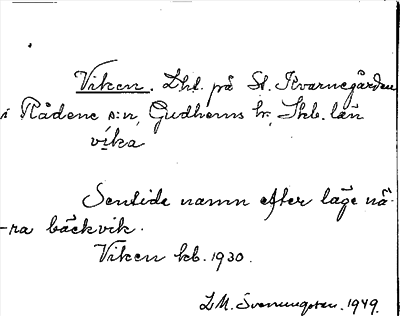 Viken. Lht. på St. Kvarnegården
i Rådene s:n, Gudhems hr, Skb. län
vika
Sentida namn efter läge nä-
-ra bäckvik.
Viken kb. 1930.
L.M. Svenungsson. 1949.